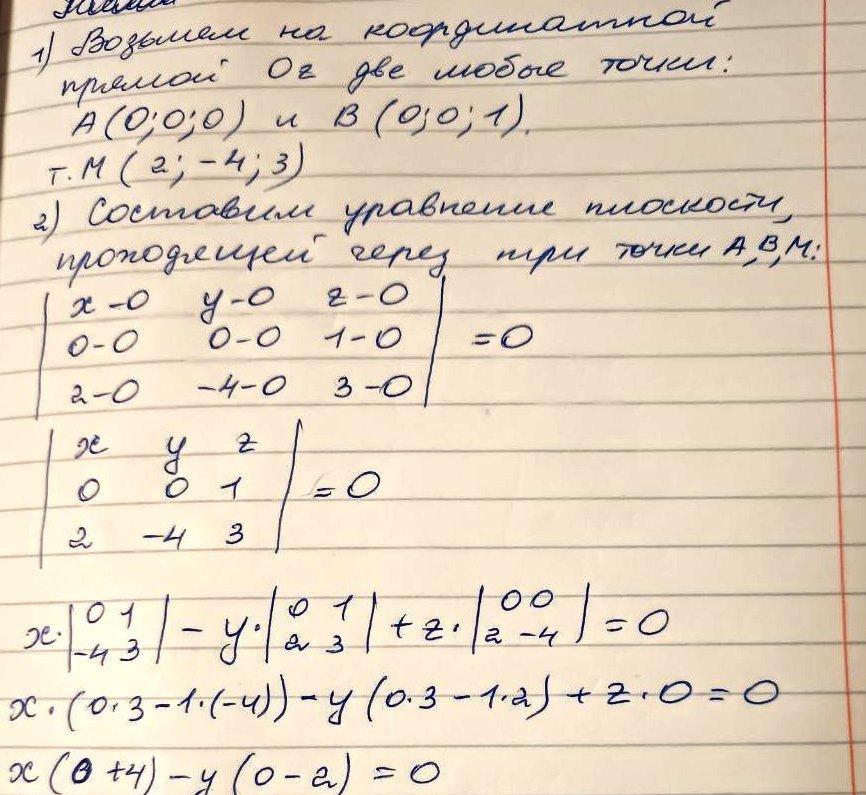 1) Возьмем на координатной
прямой Oz две любые точки:
A(0;0;0) и B(0;0;1).
т. M(2;-4;3)
2) Составим уравнение плоскости,
проходящей через три точки A,B,M:
|x-0 y-0 z-0|
|0-0 0-0 1-0| =0
|2-0 -4-0 3-0|
|x y z|
|0 0 1| =0
|2 -4 3|
x·|0 1; -4 3| - y·|0 1; 2 3| + z·|0 0; 2 -4| = 0
x·(0·3-1·(-4))-y(0·3-1·2)+z·0=0
x(0+4)-y(0-2)=0